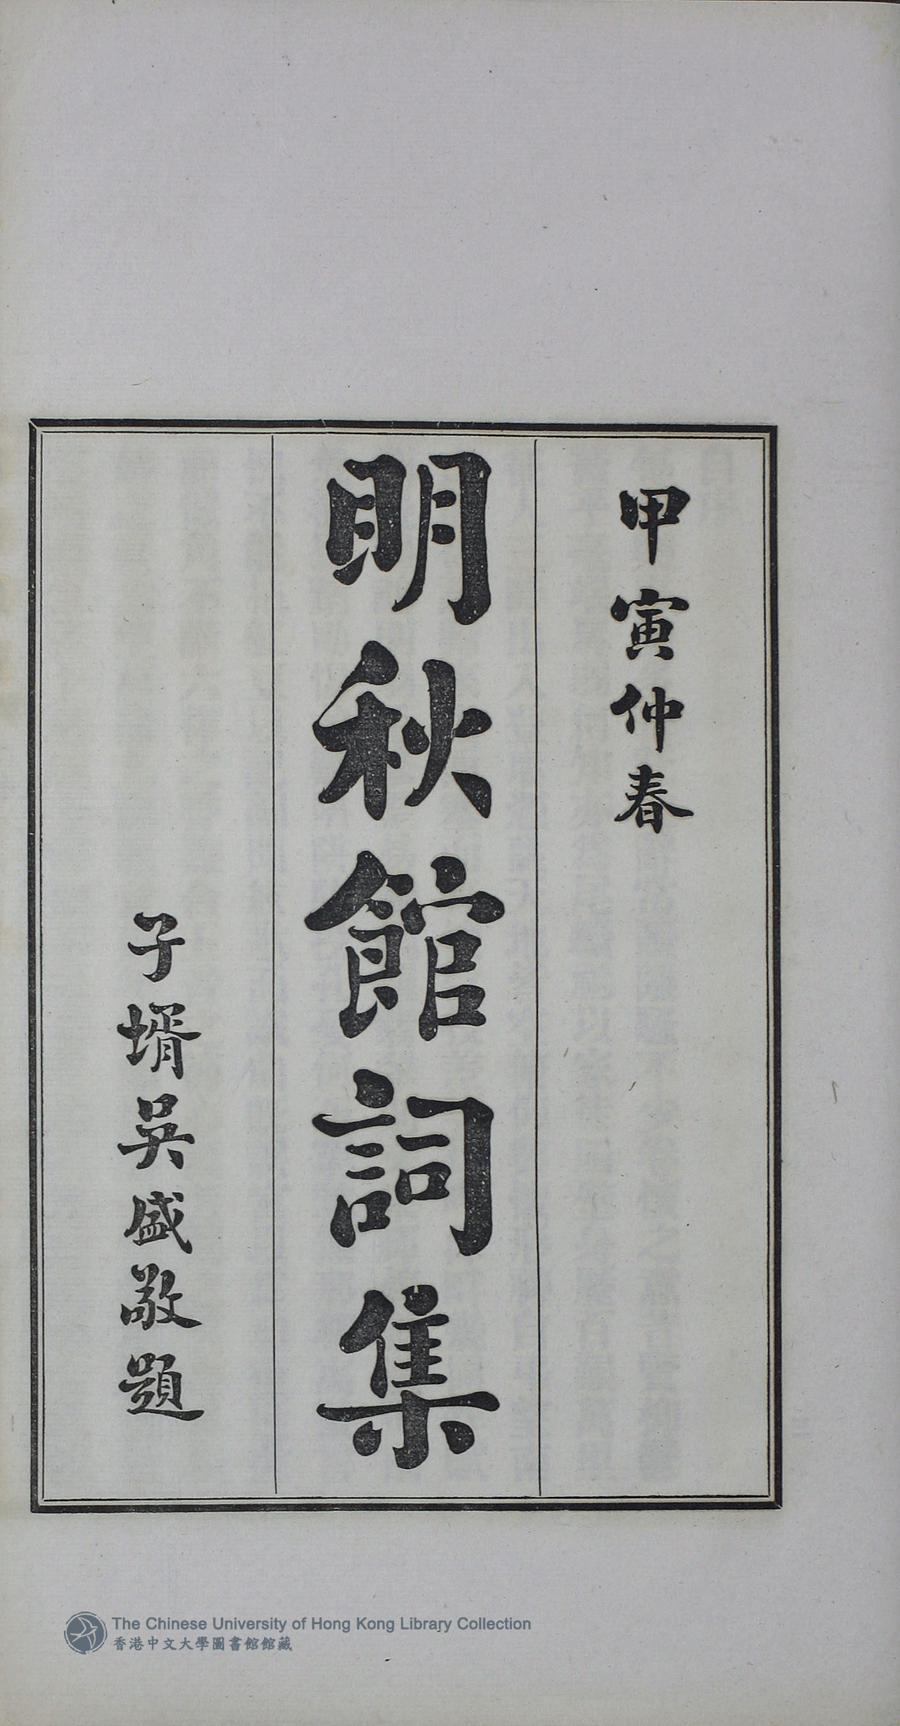 甲寅仲春
明秋館詞集
子壻吳盛敬題
The Chinese University of Hong Kong Library Collection
香港中文大學圖書館館藏